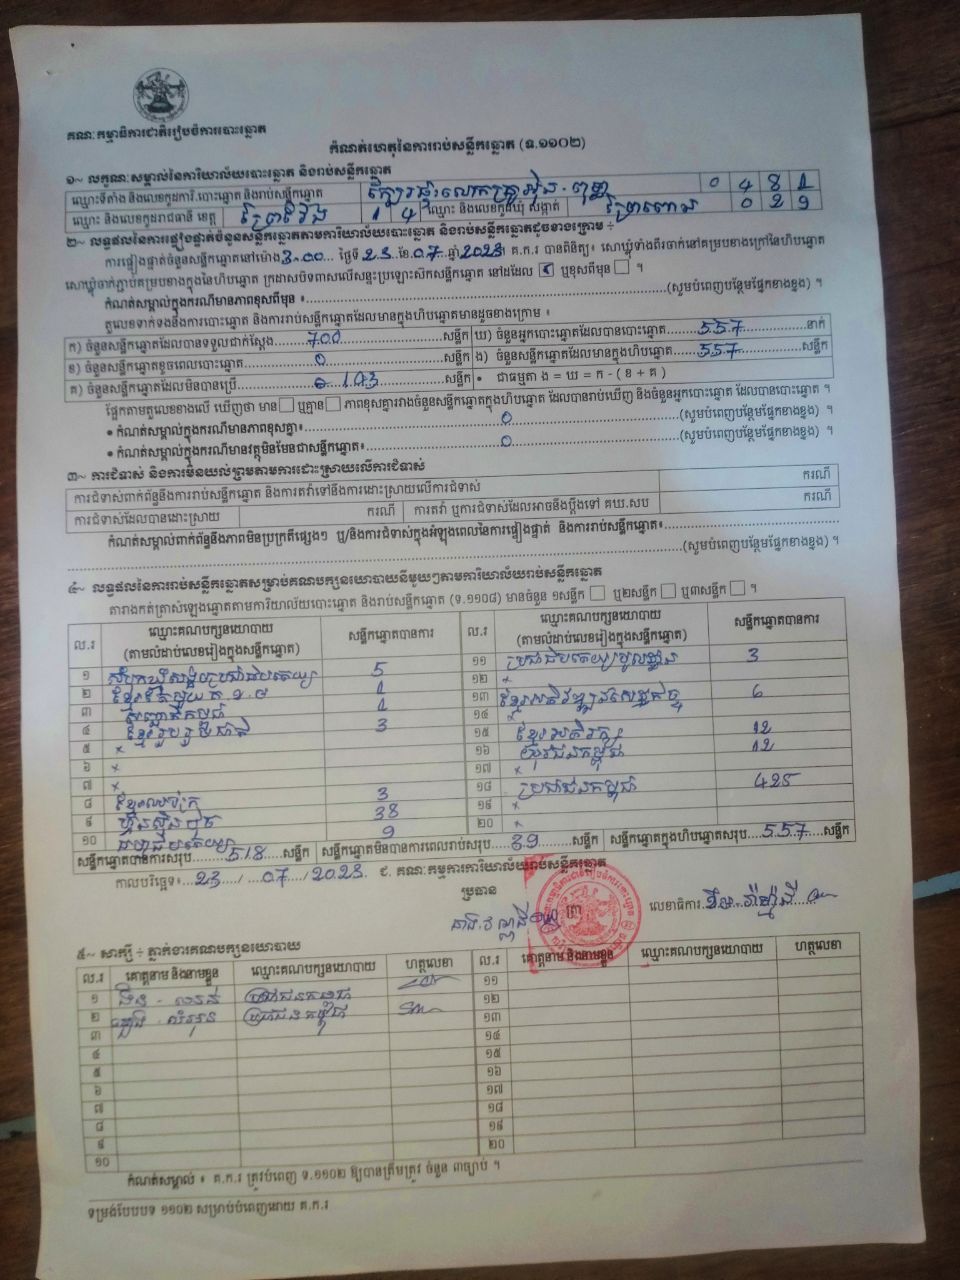 គណៈកម្មាធិការជាតិរៀបចំការបោះឆ្នោត
កំណត់ហេតុនៃការរាប់សន្លឹកឆ្នោត (ទ.១១០២)
១~ លក្ខណៈសម្គាល់នៃការិយាល័យបោះឆ្នោត និងរាប់សន្លឹកឆ្នោត
ឈ្មោះទីតាំង និងលេខកូដការិ.បោះឆ្នោត និងរាប់សន្លឹកឆ្នោត 0 4 8 1
ឈ្មោះ និងលេខកូដរាជធានី ខេត្ត ព្រៃវែង 1 4 ឈ្មោះ និងលេខកូដឃុំ សង្កាត់ 0 2 9
២~ លទ្ធផលនៃការផ្ទៀងផ្ទាត់ចំនួនសន្លឹកឆ្នោតតាមការិយាល័យបោះឆ្នោត និងរាប់សន្លឹកឆ្នោតដូចខាងក្រោម ÷
ការផ្ទៀងផ្ទាត់ចំនួនសន្លឹកឆ្នោតនៅម៉ោង 3:00 ថ្ងៃទី 23 ខែ 07 ឆ្នាំ 2023 គ.ក.រ បានពិនិត្យ៖ សោឃ្មុំទាំងពីរចាក់នៅគម្របខាងក្រៅនៃហិបឆ្នោត
សោឃ្មុំចាក់ភ្ជាប់គម្របខាងក្នុងនៃហិបឆ្នោត ក្រដាសបិទពាសលើសន្ទះប្រឡោះស៊កសន្លឹកឆ្នោត នៅដដែល ឬខុសពីមុន ។
កំណត់សម្គាល់ក្នុងករណីមានភាពខុសពីមុន ៖ (សូមបំពេញបន្ថែមផ្នែកខាងខ្នង) ។
តួលេខទាក់ទងនឹងការបោះឆ្នោត និងការរាប់សន្លឹកឆ្នោតដែលមានក្នុងហិបឆ្នោតមានដូចខាងក្រោម ៖
ក) ចំនួនសន្លឹកឆ្នោតដែលបានទទួលជាក់ស្ដែង 700 សន្លឹក ឃ) ចំនួនអ្នកបោះឆ្នោតដែលបានបោះឆ្នោត 557 នាក់
ខ) ចំនួនសន្លឹកឆ្នោតខូចពេលបោះឆ្នោត 0 សន្លឹក ង) ចំនួនសន្លឹកឆ្នោតដែលមានក្នុងហិបឆ្នោត 557 សន្លឹក
គ) ចំនួនសន្លឹកឆ្នោតដែលមិនបានប្រើ 143 សន្លឹក • ជាធម្មតា ង = ឃ = ក - ( ខ + គ )
ផ្អែកតាមតួលេខខាងលើ ឃើញថា មាន ឬគ្មាន ភាពខុសគ្នារវាងចំនួនសន្លឹកឆ្នោតក្នុងហិបឆ្នោត ដែលបានរាប់ឃើញ និងចំនួនអ្នកបោះឆ្នោត ដែលបានបោះឆ្នោត ។
• កំណត់សម្គាល់ក្នុងករណីមានភាពខុសគ្នា៖ 0 (សូមបំពេញបន្ថែមផ្នែកខាងខ្នង) ។
• កំណត់សម្គាល់ក្នុងករណីមានវត្ថុមិនមែនជាសន្លឹកឆ្នោត៖ 0 (សូមបំពេញបន្ថែមផ្នែកខាងខ្នង) ។
៣~ ការជំទាស់ និងការមិនយល់ព្រមតាមការដោះស្រាយលើការជំទាស់
ការជំទាស់ពាក់ព័ន្ធនឹងការរាប់សន្លឹកឆ្នោត និងការតវ៉ាទៅនឹងការដោះស្រាយលើការជំទាស់ ករណី
ការជំទាស់ដែលបានដោះស្រាយ ករណី ការតវ៉ា ឬការជំទាស់ដែលអាចនឹងប្ដឹងទៅ គឃ.សប ករណី
កំណត់សម្គាល់ពាក់ព័ន្ធនឹងភាពមិនប្រក្រតីផ្សេងៗ ឬ/និងការជំទាស់ក្នុងអំឡុងពេលនៃការផ្ទៀងផ្ទាត់ និងការរាប់សន្លឹកឆ្នោត៖
(សូមបំពេញបន្ថែមផ្នែកខាងខ្នង) ។
៤~ លទ្ធផលនៃការរាប់សន្លឹកឆ្នោតសម្រាប់គណបក្សនយោបាយនីមួយៗតាមការិយាល័យរាប់សន្លឹកឆ្នោត
តារាងកត់ត្រាសំឡេងឆ្នោតតាមការិយាល័យបោះឆ្នោត និងរាប់សន្លឹកឆ្នោត (ទ.១១០៨) មានចំនួន ១សន្លឹក ឬ២សន្លឹក ឬ៣សន្លឹក ។
ល.រ ឈ្មោះគណបក្សនយោបាយ (តាមលំដាប់លេខរៀងក្នុងសន្លឹកឆ្នោត) សន្លឹកឆ្នោតបានការ ល.រ ឈ្មោះគណបក្សនយោបាយ (តាមលំដាប់លេខរៀងក្នុងសន្លឹកឆ្នោត) សន្លឹកឆ្នោតបានការ
១ សំបុកឃ្មុំសង្គមប្រជាធិបតេយ្យ 5 ១១ ប្រជាធិបតេយ្យមូលដ្ឋាន 3
២ ខ្មែរតែមួយ 1 ១២ ×
៣ សញ្ជាតិកម្ពុជា 1 ១៣ ខ្មែរអភិវឌ្ឍន៍សេដ្ឋកិច្ច 6
៤ ខ្មែររួបរួមជាតិ 3 ១៤ ×
៥ × ១៥ ខ្មែរអភិរក្ស 12
៦ × ១៦ យុវជនកម្ពុជា 12
៧ × ១៧ ×
៨ ខ្មែរឈប់ក្រ 3 ១៨ ប្រជាជនកម្ពុជា 425
៩ ហ្វ៊ុនស៊ិនប៉ិច 38 ១៩ ×
១០ 9 ២០ ×
សន្លឹកឆ្នោតបានការសរុប 518 សន្លឹក សន្លឹកឆ្នោតមិនបានការពេលរាប់សរុប 39 សន្លឹក សន្លឹកឆ្នោតក្នុងហិបឆ្នោតសរុប 557 សន្លឹក
កាលបរិច្ឆេទ៖ 23 / 07 / 2023 ជ. គណៈកម្មការការិយាល័យរាប់សន្លឹកឆ្នោត
ប្រធាន
លេខាធិការ
៥~ សាក្សី ÷ ភ្នាក់ងារគណបក្សនយោបាយ
ល.រ គោត្តនាម និងនាមខ្លួន ឈ្មោះគណបក្សនយោបាយ ហត្ថលេខា ល.រ គោត្តនាម និងនាមខ្លួន ឈ្មោះគណបក្សនយោបាយ ហត្ថលេខា
១ ប្រជាជនកម្ពុជា ១១
២ ប្រជាជនកម្ពុជា ១២
៣ ១៣
៤ ១៤
៥ ១៥
៦ ១៦
៧ ១៧
៨ ១៨
៩ ១៩
១០ ២០
កំណត់សម្គាល់ ៖ គ.ក.រ ត្រូវបំពេញ ទ.១១០២ ឱ្យបានត្រឹមត្រូវ ចំនួន ៣ច្បាប់ ។
ទម្រង់បែបបទ ១១០២ សម្រាប់បំពេញដោយ គ.ក.រ